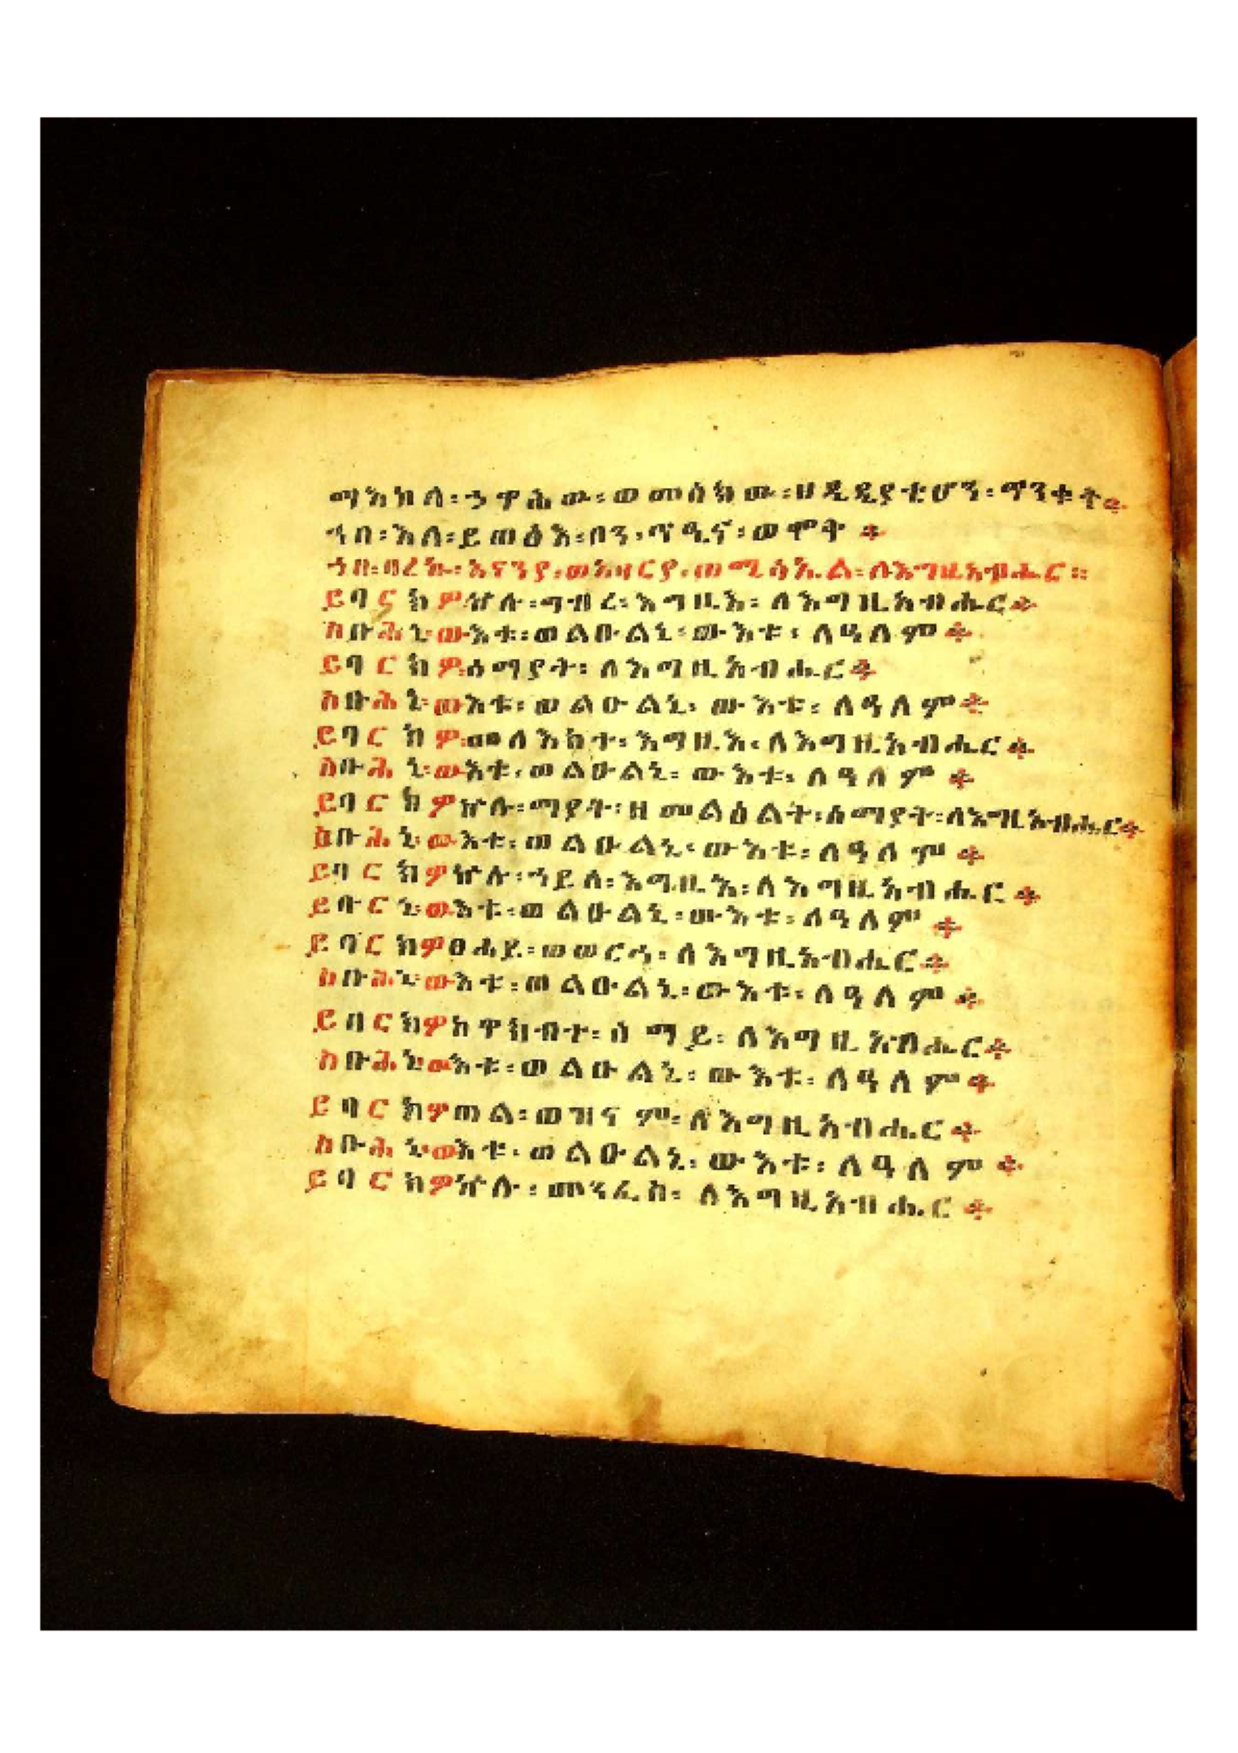 ማእከለ፡ኃዋሕው፡ወመሰከው፡
ኀበ፡እለ፡ይጠፅእ፡በን፡ጥዒና፡ወሞት ።
ኀበ፡ባረኩ፡አናንያ፡ወአዛርያ፡ወሚሳኤል፡ለእግዚአብሔር ።
ይባርክዎ፡ኵሉ፡ግብረ፡እግዚእ፡ለእግዚአብሔር ።
ስቡሕኒ፡ውእቱ፡ወልዑልኒ፡ውእቱ፡ለዓለም ።
ይባርክዎ፡ሰማያት፡ለእግዚአብሔር ።
ስቡሕኒ፡ውእቱ፡ወልዑልኒ፡ውእቱ፡ለዓለም ።
ይባርክዎ፡መለእክተ፡እግዚእ፡ለእግዚአብሔር ።
ስቡሕኒ፡ውእቱ፡ወልዑልኒ፡ውእቱ፡ለዓለም ።
ይባርክዎ፡ኵሉ፡ማያት፡ዘመልዕልት፡ሰማያት፡ለእግዚአብሔር ።
ስቡሕኒ፡ውእቱ፡ወልዑልኒ፡ውእቱ፡ለዓለም ።
ይባርክዎ፡ኵሉ፡ኀይለ፡እግዚእ፡ለእግዚአብሔር ።
ይቡርኒ፡ውእቱ፡ወልዑልኒ፡ውእቱ፡ለዓለም ።
ይባርክዎ፡ዐሐይ፡ወወርኅ፡ለእግዚአብሔር ።
ስቡሕኒ፡ውእቱ፡ወልዑልኒ፡ውእቱ፡ለዓለም ።
ይባርክዎ፡ከዋክብተ፡ሰማይ፡ለእግዚአብሔር ።
ስቡሕኒ፡ውእቱ፡ወልዑልኒ፡ውእቱ፡ለዓለም ።
ይባርክዎ፡ጠል፡ወዝናም፡ለእግዚአብሔር ።
ስቡሕኒ፡ውእቱ፡ወልዑልኒ፡ውእቱ፡ለዓለም ።
ይባርክዎ፡ኵሉ፡መንፈስ፡ለእግዚአብሔር ።